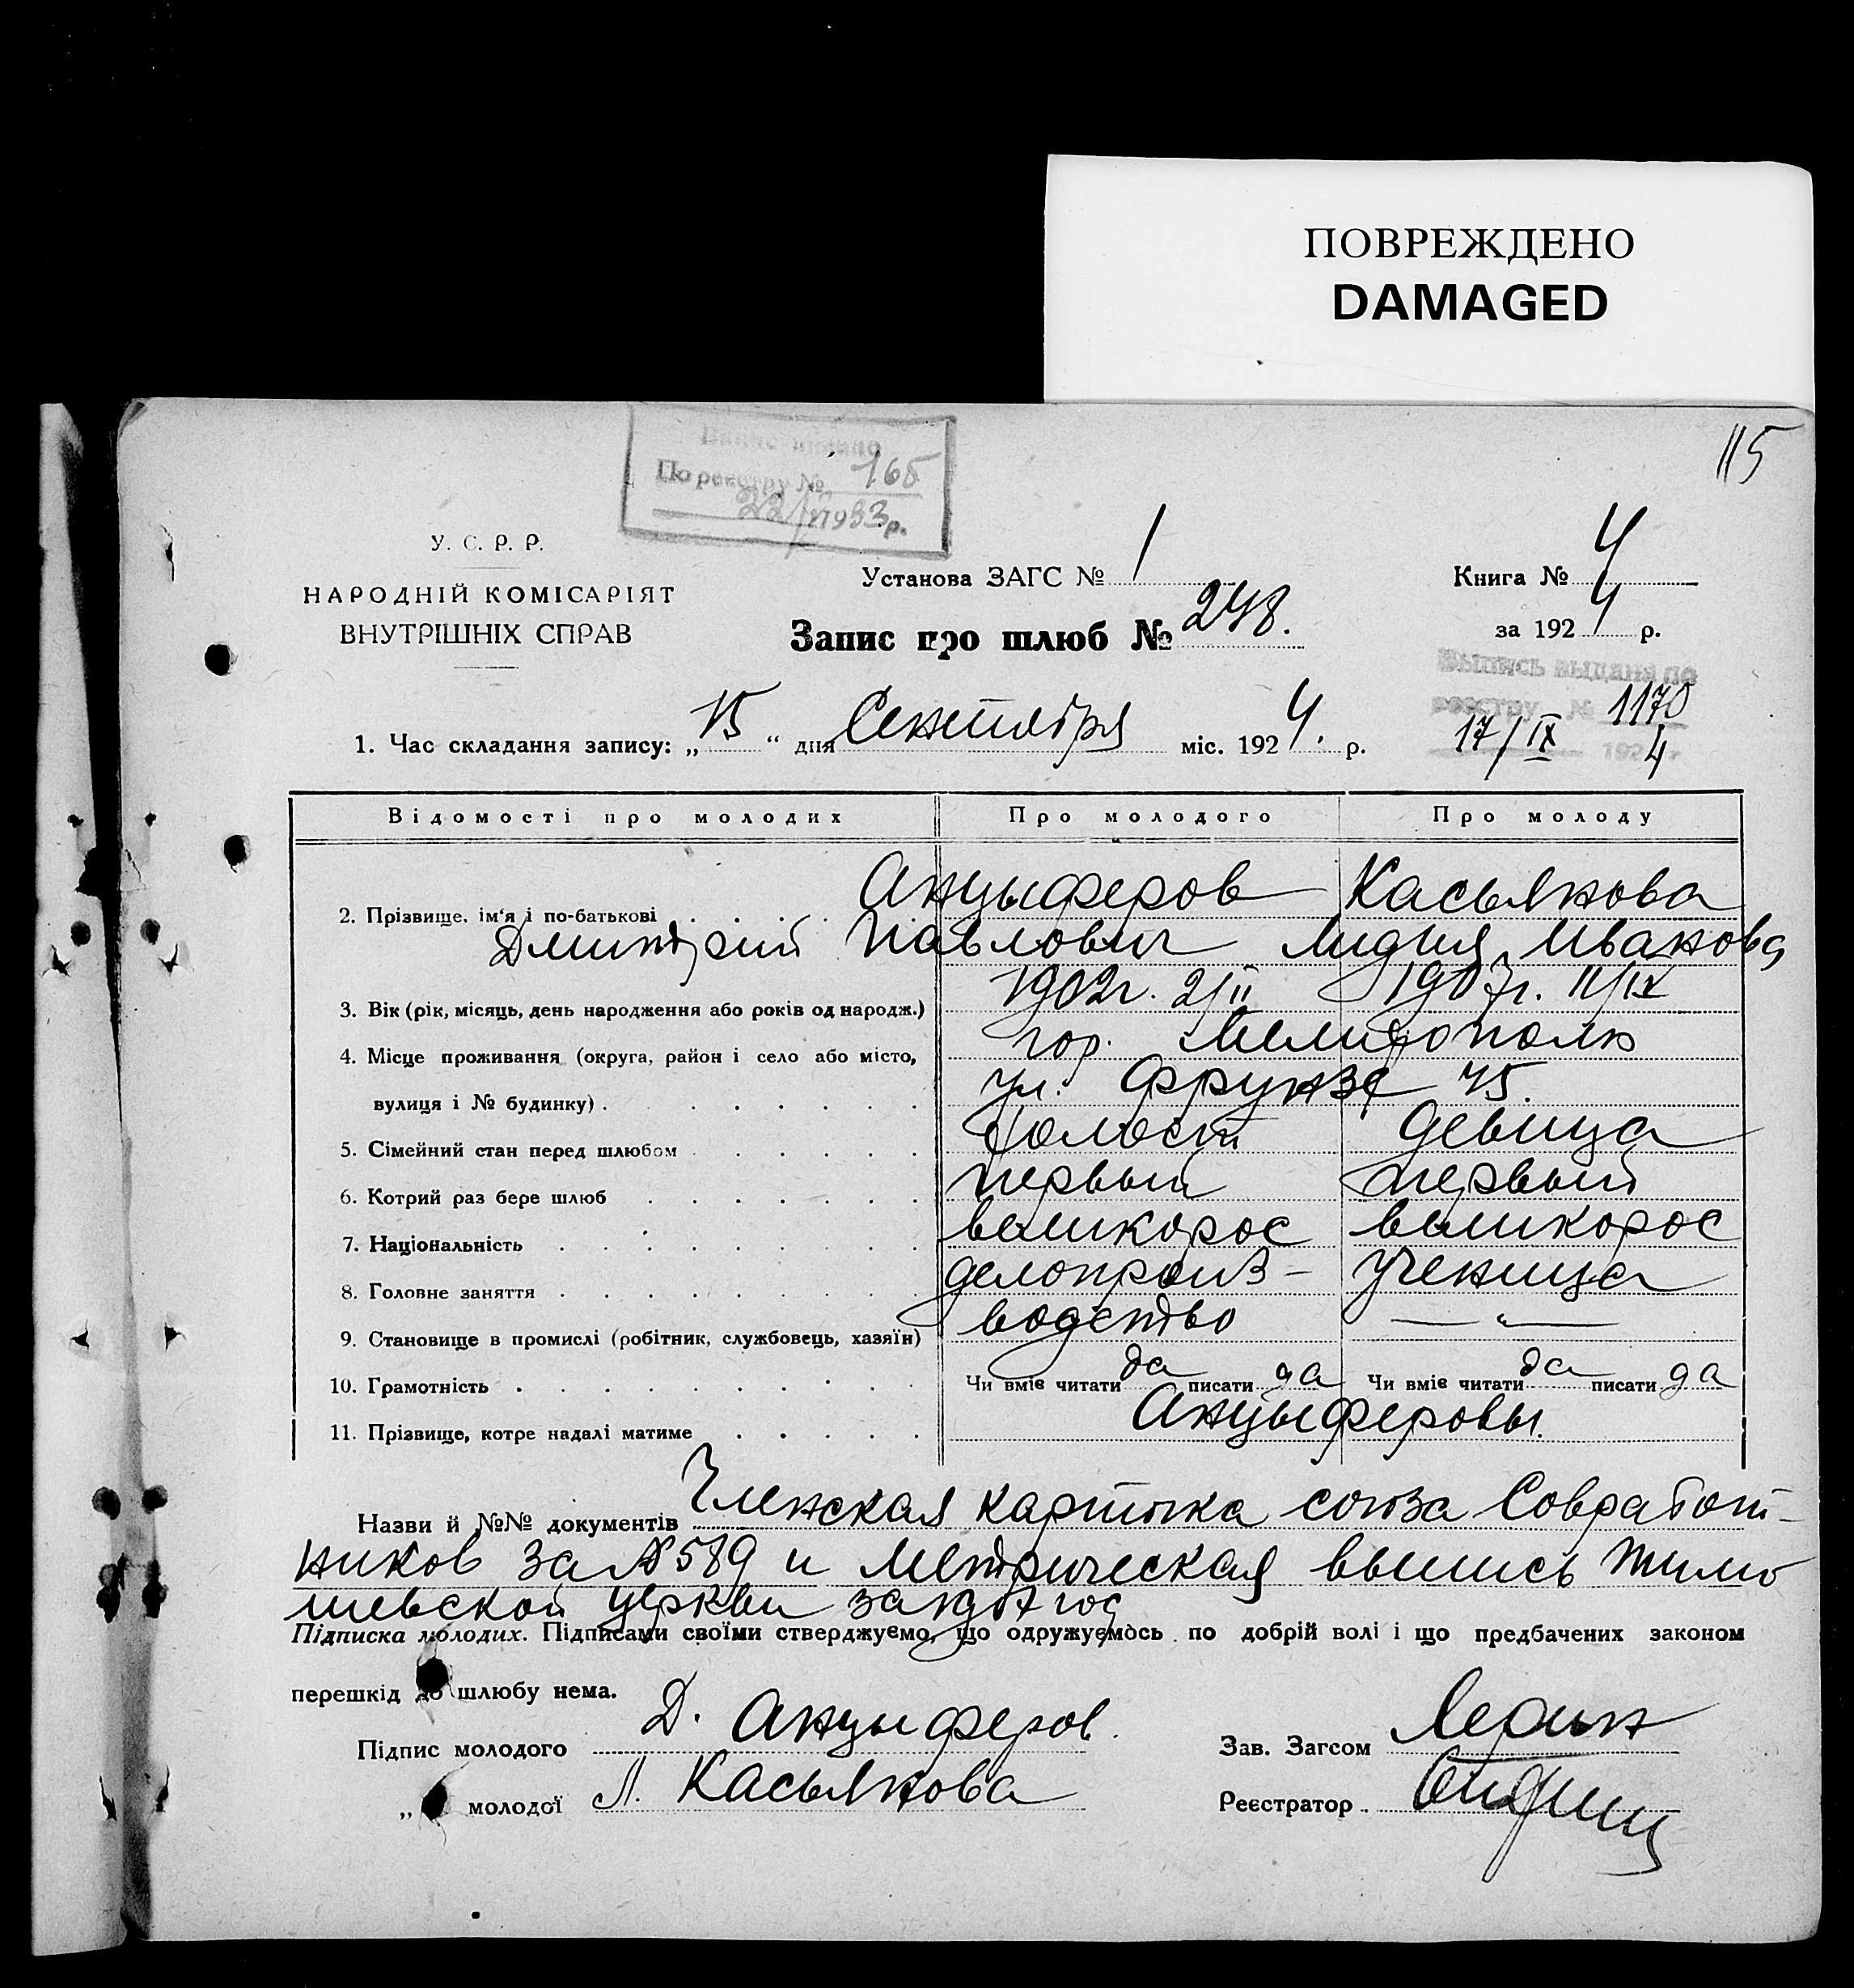 ПОВРЕЖДЕНО
DAMAGED
115
По реєстру № 165
22/ 1933 р.
У. С. Р. Р.
НАРОДНІЙ КОМІСАРІЯТ
ВНУТРІШНІХ СПРАВ
Установа ЗАГС № 1
Запис про шлюб № 248.
Книга № 4
за 1924 р.
Выпись выдана по
реестру № 1170
17/IX 1924 г
1. Час складання запису: „15“ дня Сентября міс. 1924. р.
Відомості про молодих Про молодого Про молоду
2. Прізвище, ім'я і по-батькові Анцыферов Касьянова
Дмитрий Павлович Лидия Иванова
3. Вік (рік, місяць, день народження або років од народж.) 1902г. 2/II 1907г. 11/IX
4. Місце проживання (округа, район і село або місто, гор. Мелитополь
вулиця і № будинку) ул. Фрунзе 45.
5. Сімейний стан перед шлюбом холост девица
6. Котрий раз бере шлюб первый первый
7. Національність великорос великорос
8. Головне заняття делопроиз- ученица
9. Становище в промислі (робітник, службовець, хазяїн) водство — „ —
10. Грамотність Чи вміє читати да писати да Чи вміє читати да писати да
11. Прізвище, котре надалі матиме Анцыферовы.
Назви й №№ документів Членская карточка союза Совработ-
ников за №589 и метрическая выпись Тимо
шевской церкви за 1907 год
Підписка молодих. Підписами своїми стверджуємо, що одружуємось по добрій волі і що предбачених законом
перешкід до шлюбу нема.
Підпис молодого Д. Анцыферов.
Зав. Загсом
„ молодої Л. Касьянова
Реєстратор